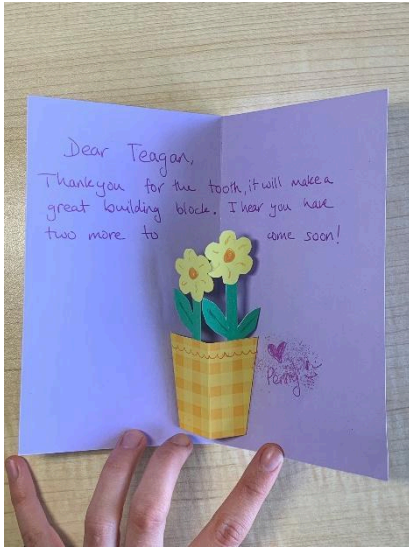 Dear Teagan,
Thank you for the tooth, it will make a
great building block. I hear you have
two more to come soon!